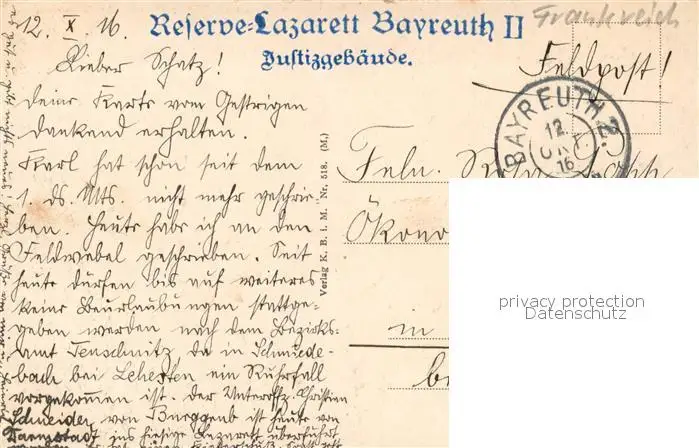 12. X. 16.
Reserve-Lazarett Bayreuth II
Justizgebäude.
Frankreich
Feldpost!
BAYREUTH 2.
12.
OKT
16
Lieber Schatz!
Deine Karte vom Gestrigen
dankend erhalten.
Karl hat schon seit dem
1. ds. Mts. nicht mehr geschrie-
ben. Heute habe ich an den
Feldwebel geschrieben. Seit
heute dürfen bis auf weiteres
keine Beurlaubungen stattge-
geben werden nach dem Bezirks-
amt Teuschnitz, da in Schmiede-
bach bei Lehesten ein Ruhrfall
vorgekommen ist. Der Unteroffz. Christian
Schneider von Burggrub ist heute von
Darmstadt ins hiesige Lazarett überführt
Verlag K. B. i. M. Nr. 518. (M.)
Frln.
Ökono
in
b
privacy protection
Datenschutz